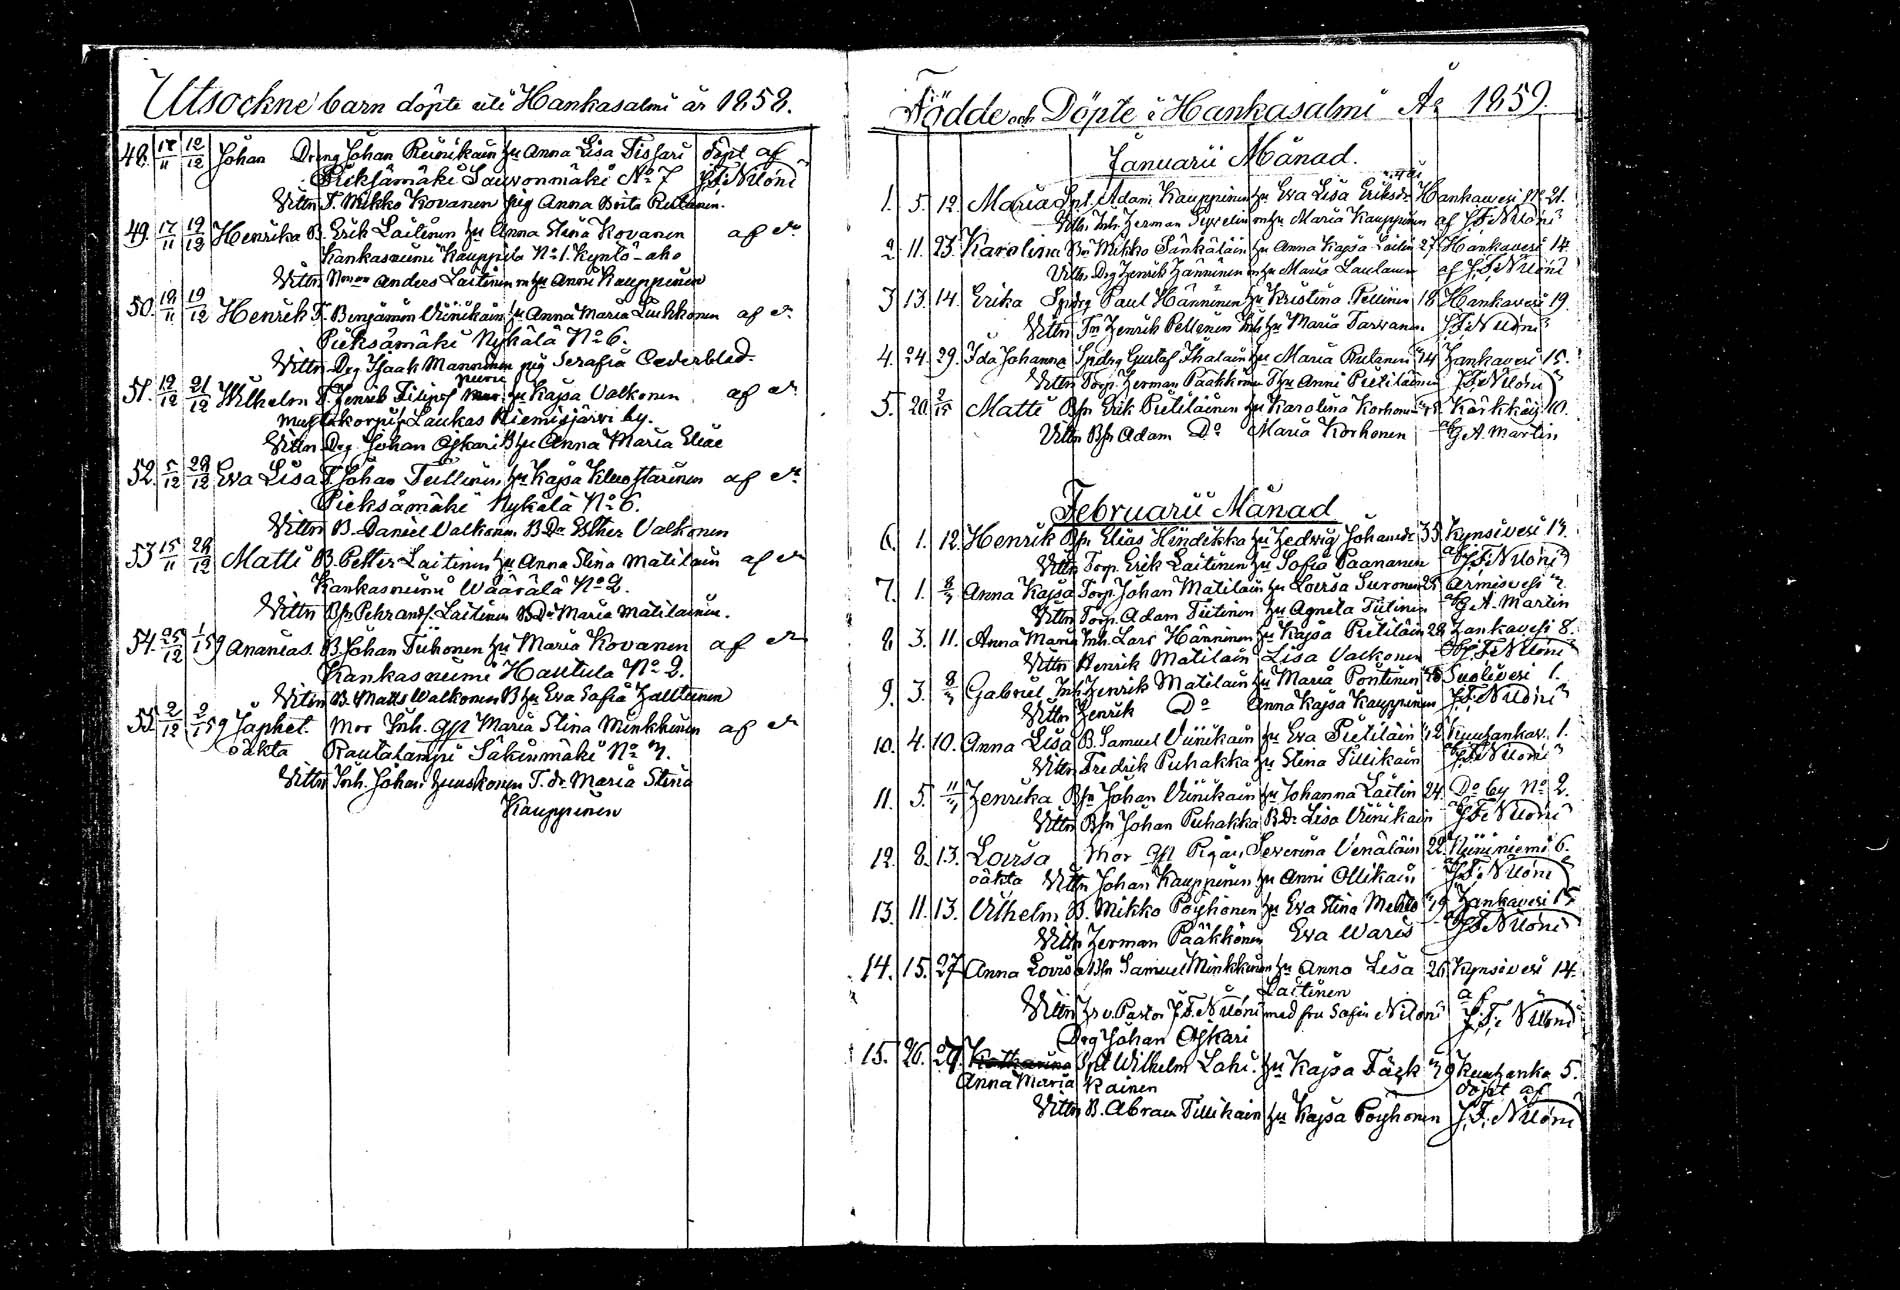 Utsockne barn döpte uti Hankasalmi år 1858.
48. 17/11 12/12 Johan Dreng Johan Reinikain hu Anna Lisa Tissari döpt af
Pieksämäki Sauvonmäki No 7 J.F. Niloni
Vittn T. Mikko Kovanen pig Anna Brita Rutanen.
49. 17/11 19/12 Henrika B. Erik Laitinen hu Anna Stina Kovanen af do
Kankasniemi Kauppila No 1. Kyntö-aho
Vittn Anders Laitinen m hu Anni Kauppinen
50. 18/11 19/12 Henrik T. Benjamin Viinikain hu Anna Maria Liukkonen af do
Pieksämäki Nykälä No 6.
Vittn Drg Isaak Manninen pig Serafia Cederblad.
51. 12/12 21/12 Wilhelm T. Henrik Filipof hu Kajsa Valkonen af do
Laukas Niemisjärvi by.
Vittn Drg Johan Oskari B hu Anna Maria Eliae
52. 5/12 28/12 Eva Lisa T. Johan Tullinen hu Kajsa af do
Pieksämäki Nykälä No 6.
Vittn B. Daniel Valkonen B Dr Esther Valkonen
53 15/11 28/12 Matti B. Petter Laitinen hu Anna Stina Matilain af do
Kankasniemi Wäärälä No 2.
Vittn Bsn Pehr And. Laitinen B Dr Maria Matilainen.
54. 25/12 1/1 59 Ananias. B. Johan Tiihonen hu Maria Kovanen af do
Kankasniemi Hautula No 2.
Vittn B. Matts Walkonen B hu Eva Sofia Halttunen
55. 2/12 2/1 59 Japhet. Mor Inh. gft Maria Stina Minkkinen af do
oäkta Rautalampi Säkinmäki No 7.
Vittn Inh. Johan Huuskonen T. dr Maria Stina
Kauppinen
Födde och Döpte i Hankasalmi År 1859.
Januarii Månad.
1. 5. 12. Maria Spl. Adam Kauppinen hu Eva Lisa Eriksdr Hankavesi No 21.
Vittn Inh. Herman m hu Maria Kauppinen af J.F. Niloni
2. 11. 23. Karolina Bn Mikko Länkäläin hu Anna Kajsa Laitin 27. Hankavesi 14.
Vittn Drg Henrik Hänninen m hu Maria Laulainen af J.F. Niloni
3 13. 14. Erika Spdrg Paul Hänninen hu Kristina Pellinen 18 Hankavesi 19.
Vittn Henrik Pellinen hu Maria Tarvainen J.F. Niloni
4. 24. 29. Ida Johanna Spdrg Gustaf Ihalain hu Maria Rutanen 24 Hankavesi 15.
Vittn Torp. Herman Pääkkönen T hu Anni Pietiläinen J.F. Niloni
5. 20. 2/15 Matti Bsn Erik Pietiläinen hu Karolina Korhonen Kärkkäis 10.
Vittn Bsn Adam Do Maria Korhonen af G.A. Martin
Februarii Månad
6. 1. 12. Henrik Bsn Elias Hindikka hu Hedvig Johansdr 33 Kynsivesi 13.
Vittn Torp. Erik Laitinen hu Sofia Paananen af J.F. Niloni
7. 1. 8/3 Anna Kajsa Torp. Johan Matilain hu Lovisa Suronen 25 Armisvesi 2.
Vittn Torp. Adam Tiitinen hu Agneta Tiitinen af G.A. Martin
8 3. 11. Anna Maria Inh. Lars Hänninen hu Kajsa Pietiläin 28 Hankavesi 8.
Vittn Henrik Matilain Lisa Valkonen af J.F. Niloni
9. 3. 8/3 Gabriel Inh. Henrik Matilain hu Maria Pöntinen Suolivesi 1.
Vittn Henrik Do Anna Kajsa Kauppinen J.F. Niloni
10. 4. 10. Anna Lisa B. Samuel Viinikain hu Eva Pietiläin 42 Kuuhankav. 1.
Vittn Fredrik Puhakka hu Stina Tillikain af J.F. Niloni
11. 5. Henrika Bsn Johan Viinikain hu Johanna Laitin 24. Do by No 2.
Vittn Bsn Johan Puhakka B Dr Lisa Viinikain J.F. Niloni
12. 8. 13. Lovisa Mor gft Severina Venäläin 22. Niininiemi 6.
oäkta Vittn Johan Kauppinen hu Anni Ollikain J.F. Niloni
13. 11. 13. Vilhelm B. Mikko Pöyhönen hu Eva Stina Mehto Hankavesi 15
Vittn Herman Pääkkönen Eva Waris J.F. Niloni
14. 15. 27 Anna Lovisa Bsn Samuel Minkkinen hu Anna Lisa 26 Kynsivesi 14.
Laitinen af
Vittn Hr v. Pastor J.F. Niloni med fru Sofie Niloni J.F. Niloni
Drg Johan Oskari
15. 26. 27. Katharina Spl Wilhelm Lahi. hu Kajsa Täck 29 Kuuhanka 5.
Anna Maria Kainen döpt af
Vittn B. Abram Tillikain hu Kajsa Pöyhönen J.F. Niloni